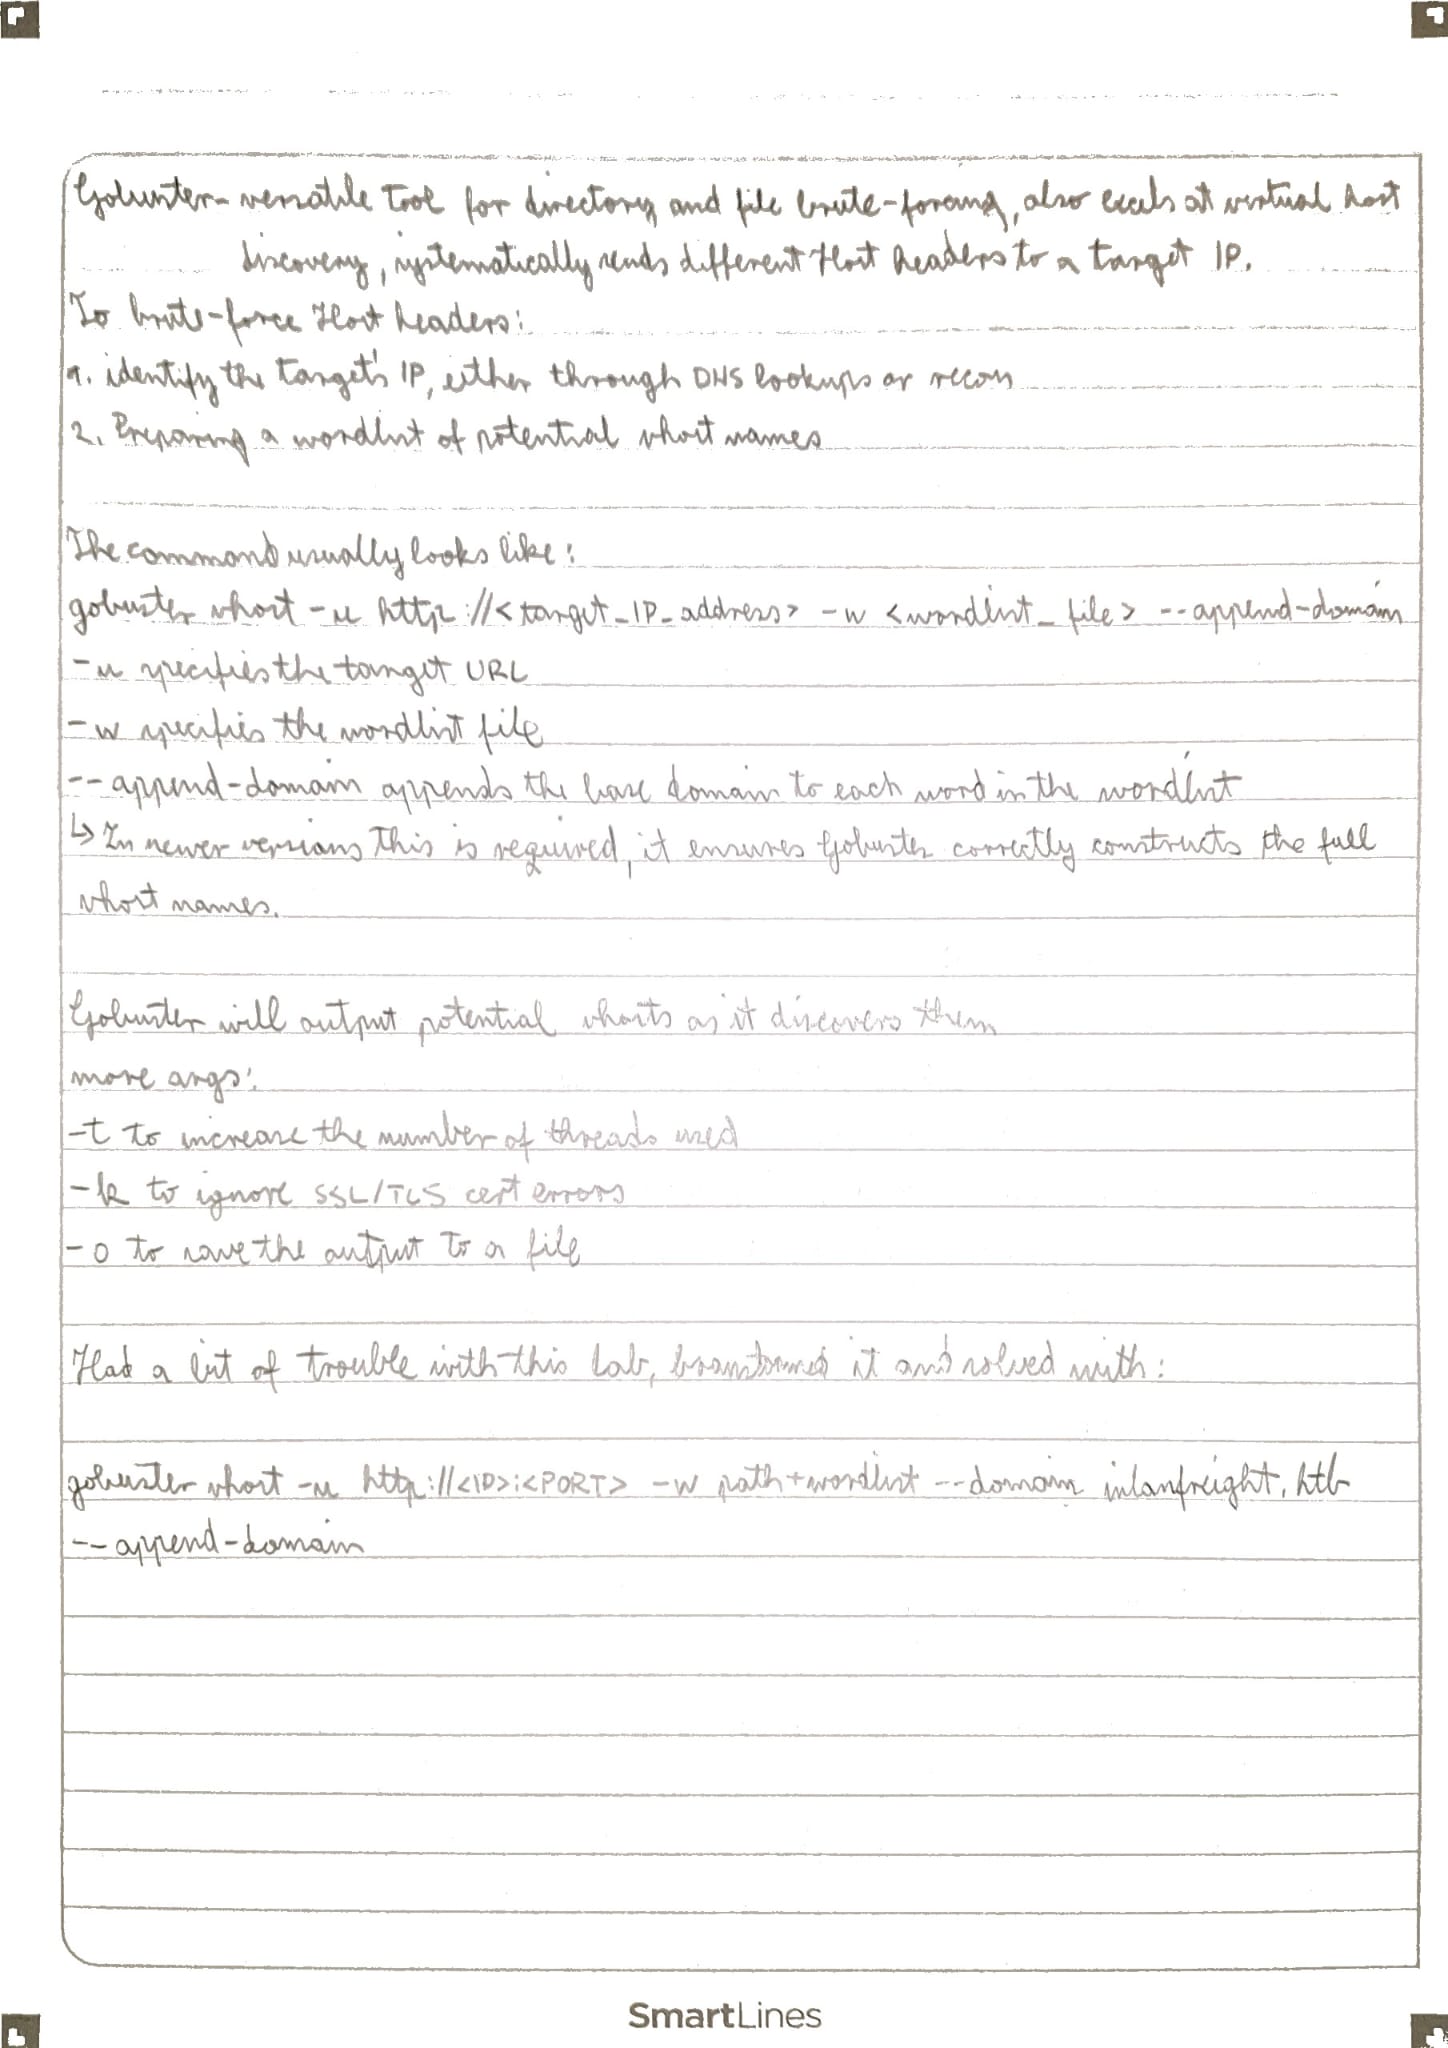 Gobuster - versatile tool for directory and file brute-forcing, also excels at virtual host
discovery, systematically sends different Host headers to a target IP.
To brute-force Host headers:
1. identify the target's IP, either through DNS lookups or recon
2. Preparing a wordlist of potential vhost names
The command usually looks like:
gobuster vhost -u http://<target_IP_address> -w <wordlist_file> --append-domain
-u specifies the target URL
-w specifies the wordlist file
--append-domain appends the base domain to each word in the wordlist
↳ In newer versions this is required, it ensures Gobuster correctly constructs the full
vhost names.
Gobuster will output potential vhosts as it discovers them
more args:
-t to increase the number of threads used
-k to ignore SSL/TLS cert errors
-o to save the output to a file
Had a bit of trouble with this lab, it and solved with:
gobuster vhost -u http://<IP>:<PORT> -w path+wordlist --domain inlanefreight.htb
--append-domain
SmartLines